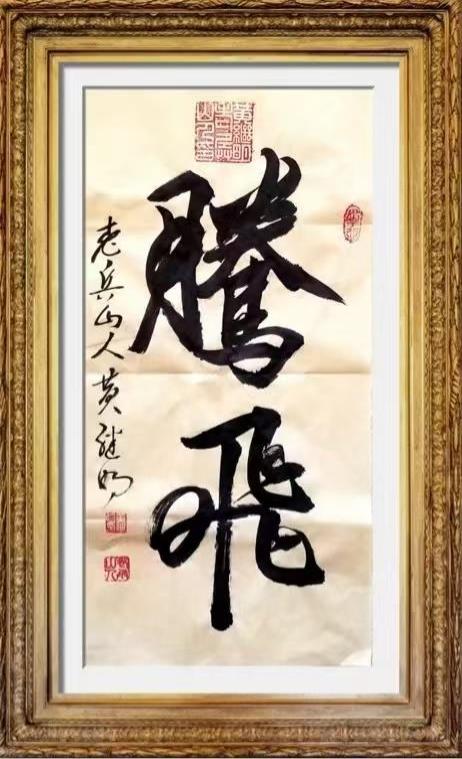 騰飛
老兵山人黄继明